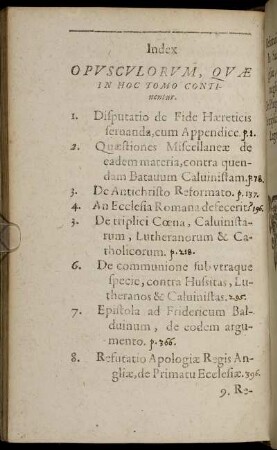 Index
OPVSCVLORVM, QVÆ
IN HOC TOMO CONTI-
nentur.
1. Disputatio de Fide Hæreticis
seruanda, cum Appendice. p.1.
2. Quæstiones Miscellaneæ de
eadem materia, contra quen-
dam Batauum Caluinistam. p.78.
3. De Antichristo Reformato. p.137.
4. An Ecclesia Romana defecerit? 196.
5. De triplici Cœna, Caluinista-
rum, Lutheranorum & Ca-
tholicorum. p.218.
6. De communione sub vtraque
specie, contra Hussitas, Lu-
theranos & Caluinistas. 295.
7. Epistola ad Fridericum Bal-
duinum, de eodem argu-
mento. p.366.
8. Refutatio Apologiæ Regis An-
gliæ, de Primatu Ecclesiæ. 396.
9. Re-